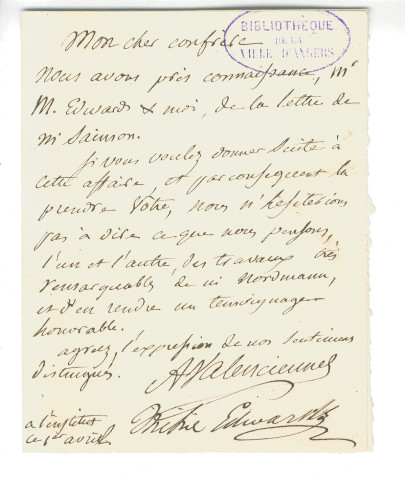 Mon cher confrère
BIBLIOTHÈQUE
DE LA
VILLE D'ANGERS
Nous avons pris connaissance, Mr
M. Edwards & moi, de la lettre de
m Sainson.
Si vous voulez donner suite à
cette affaire, et par consequent la
prendre Vôtre, nous n'hesiterions
pas à dire ce que nous pensons,
l'un et l'autre, des travaux très
remarquables de m Nordmann,
et d'en rendre un temoignage
honorable.
agreez, l'expression de nos sentimens
distingués.
AValenciennes
Milne Edwards
a l'institut
ce 1er avril